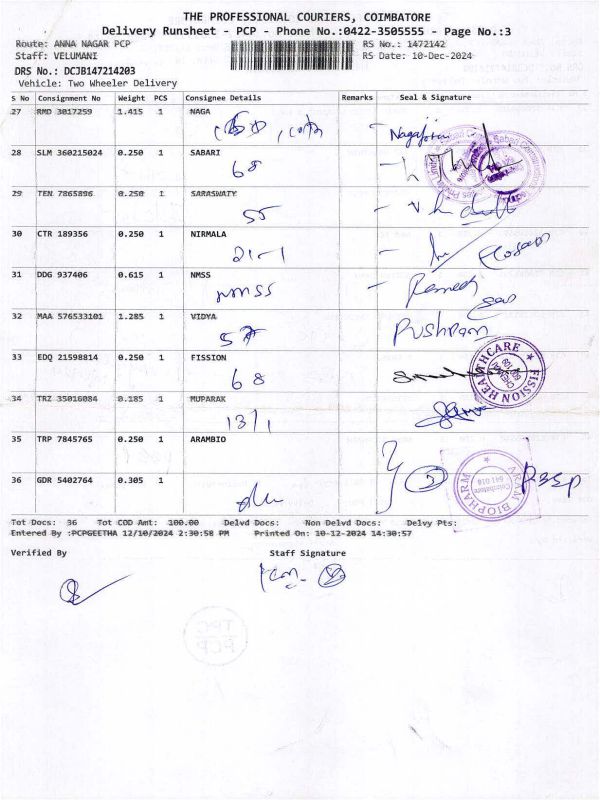 THE PROFESSIONAL COURIERS, COIMBATORE
Delivery Runsheet - PCP - Phone No.:0422-3505555 - Page No.:3
Route: ANNA NAGAR PCP RS No.: 1472142
Staff: VELUMANI RS Date: 10-Dec-2024
DRS No.: DCJB147214203
Vehicle: Two Wheeler Delivery
S No Consignment No Weight PCS Consignee Details Remarks Seal & Signature
27 RMD 3017259 1.415 1 NAGA
28 SLM 360215024 0.250 1 SABARI
68
29 TEN 7865896 0.250 1 SARASWATY
55
30 CTR 189356 0.250 1 NIRMALA
21-1
31 DDG 937406 0.615 1 NMSS
NMSS Ramesh
32 MAA 576533101 1.285 1 VIDYA
Pushpam
33 EDQ 21598814 0.250 1 FISSION
68
FISSION HEALTHCARE
34 TRZ 35016084 0.185 1 MUPARAK
13/1
35 TRP 7845765 0.250 1 ARAMBIO
ARAM BIOPHARM
Coimbatore
36 GDR 5402764 0.305 1
Tot Docs: 36 Tot COD Amt: 100.00 Delvd Docs: Non Delvd Docs: Delvy Pts:
Entered By :PCPGEETHA 12/10/2024 2:30:58 PM Printed On: 10-12-2024 14:30:57
Verified By Staff Signature